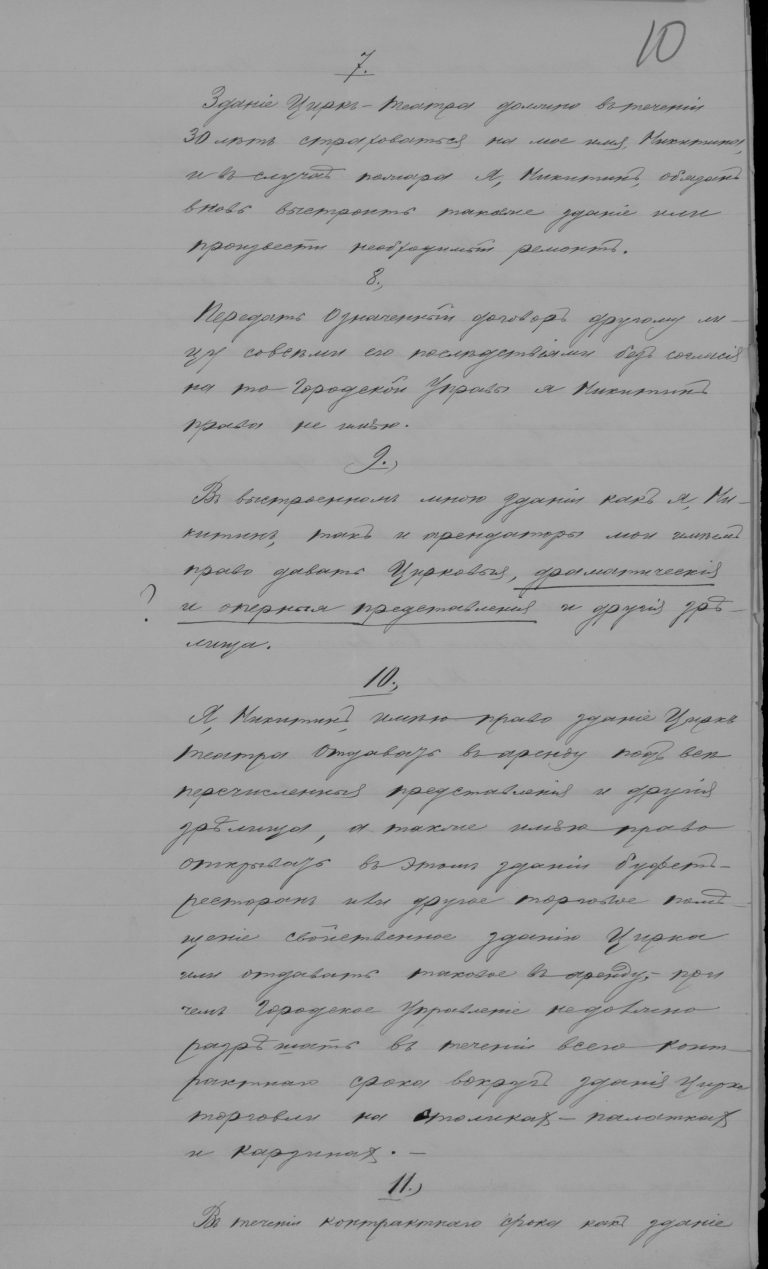 10
7.
Зданіе Циркъ-театра должно въ теченіи
30 лѣтъ страховаться на мое имя, Никитина,
и въ случаѣ пожара я, Никитинъ, обязанъ
вновь выстроить такое же зданіе или
произвести необходимый ремонтъ.
8.,
Передать означенный договоръ другому ли-
цу со всѣми его послѣдствіями безъ согласія
на то Городской Управы я Никитинъ
права не имѣю.
9.,
Въ выстроенномъ мною зданіи какъ я, Ни-
китинъ, такъ и арендаторы мои имѣемъ
право давать Цирковыя, драматическія
? и оперныя представленія и другія зрѣ-
лища.
10.,
Я, Никитинъ, имѣю право зданіе Циркъ
театра отдавать въ аренду подъ все
перечисленныя представленія и другія
зрѣлища, а также имѣю право
открывать въ этомъ зданіи буфетъ-
ресторанъ или другое торговое помѣ-
щеніе свойственное зданію Цирка
или отдавать таковое въ аренду,- при
чемъ Городское Управленіе не должно
разрѣшать въ теченіи всего конт-
рактнаго срока вокругъ зданія цирка
торговли на столикахъ - палаткахъ
и карзинахъ. -
11.,
Въ теченіи контрактнаго срока какъ зданіе